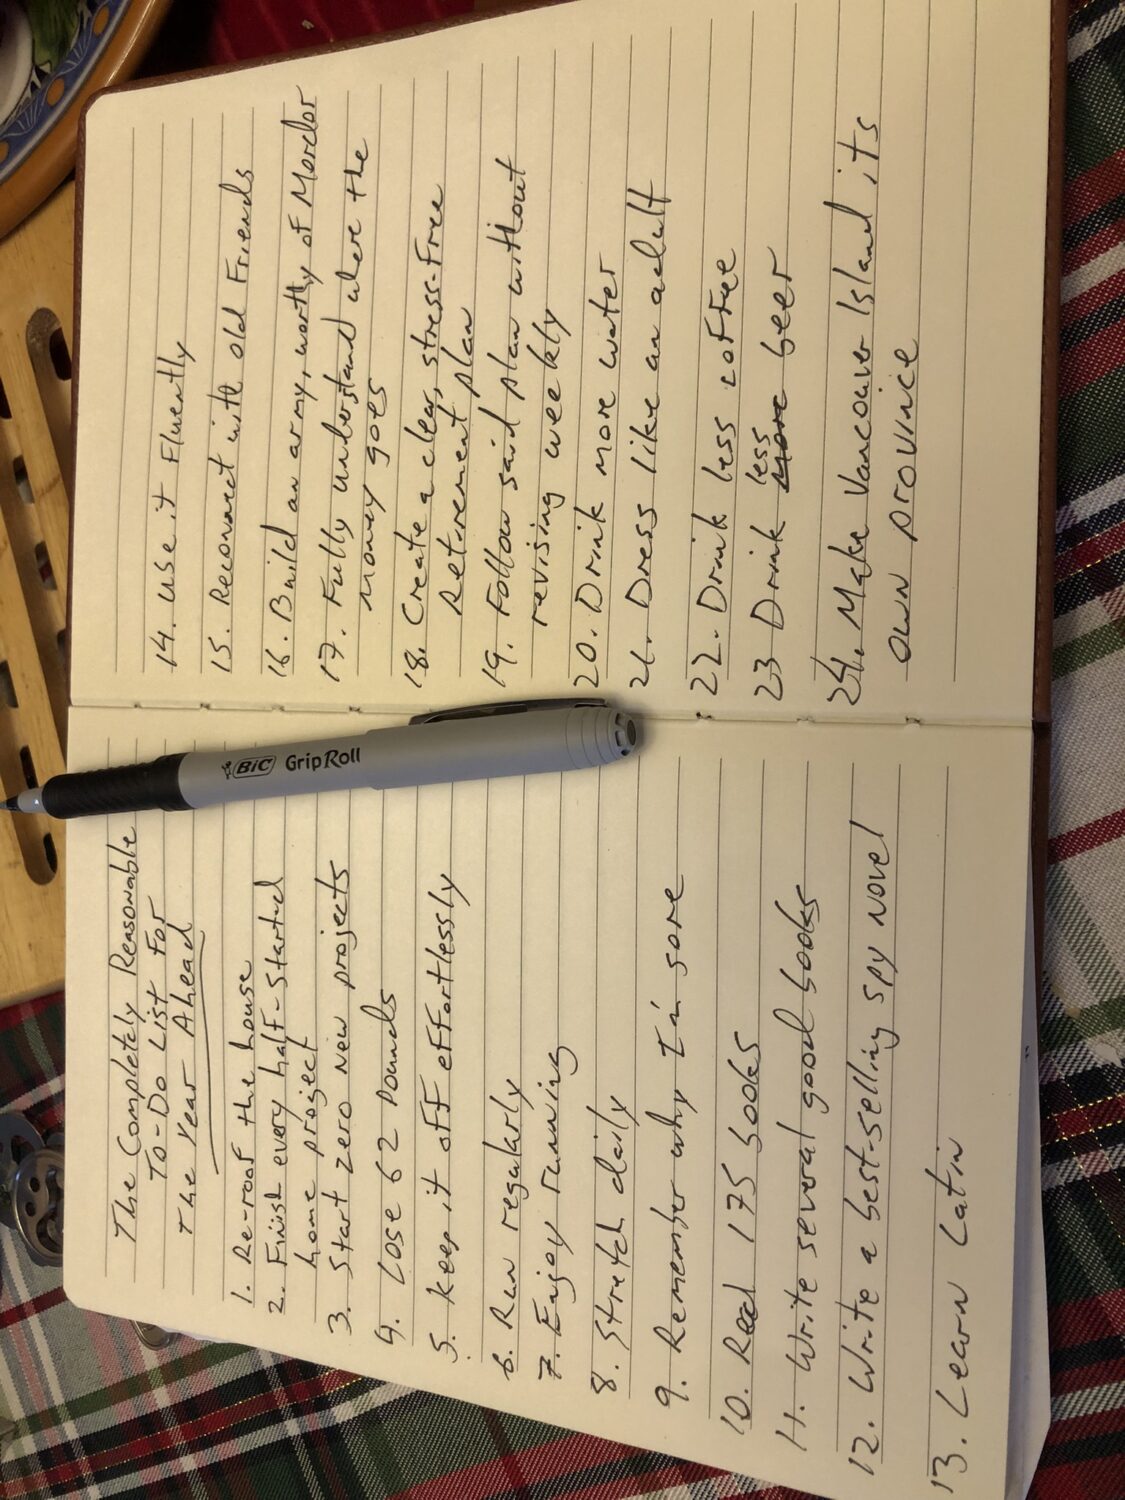 The Completely Reasonable
To-Do List For
The Year Ahead
1. Re-roof the house
2. Finish every half-started
home project
3. Start zero new projects
4. Lose 62 pounds
5. Keep it off effortlessly
6. Run regularly
7. Enjoy running
8. Stretch daily
9. Remember why I'm sore
10. Read 175 books
11. Write several good books
12. Write a best-selling spy novel
13. Learn Latin
BIC GripRoll
14. Use it fluently
15. Reconnect with old Friends
16. Build an army, worthy of Mordor
17. Fully understand where the
money goes
18. Create a clear, stress-free
retirement plan
19. Follow said plan without
revising weekly
20. Drink more water
21. Dress like an adult
22. Drink less coffee
less
23 Drink more beer
24. Make Vancouver Island its
own province